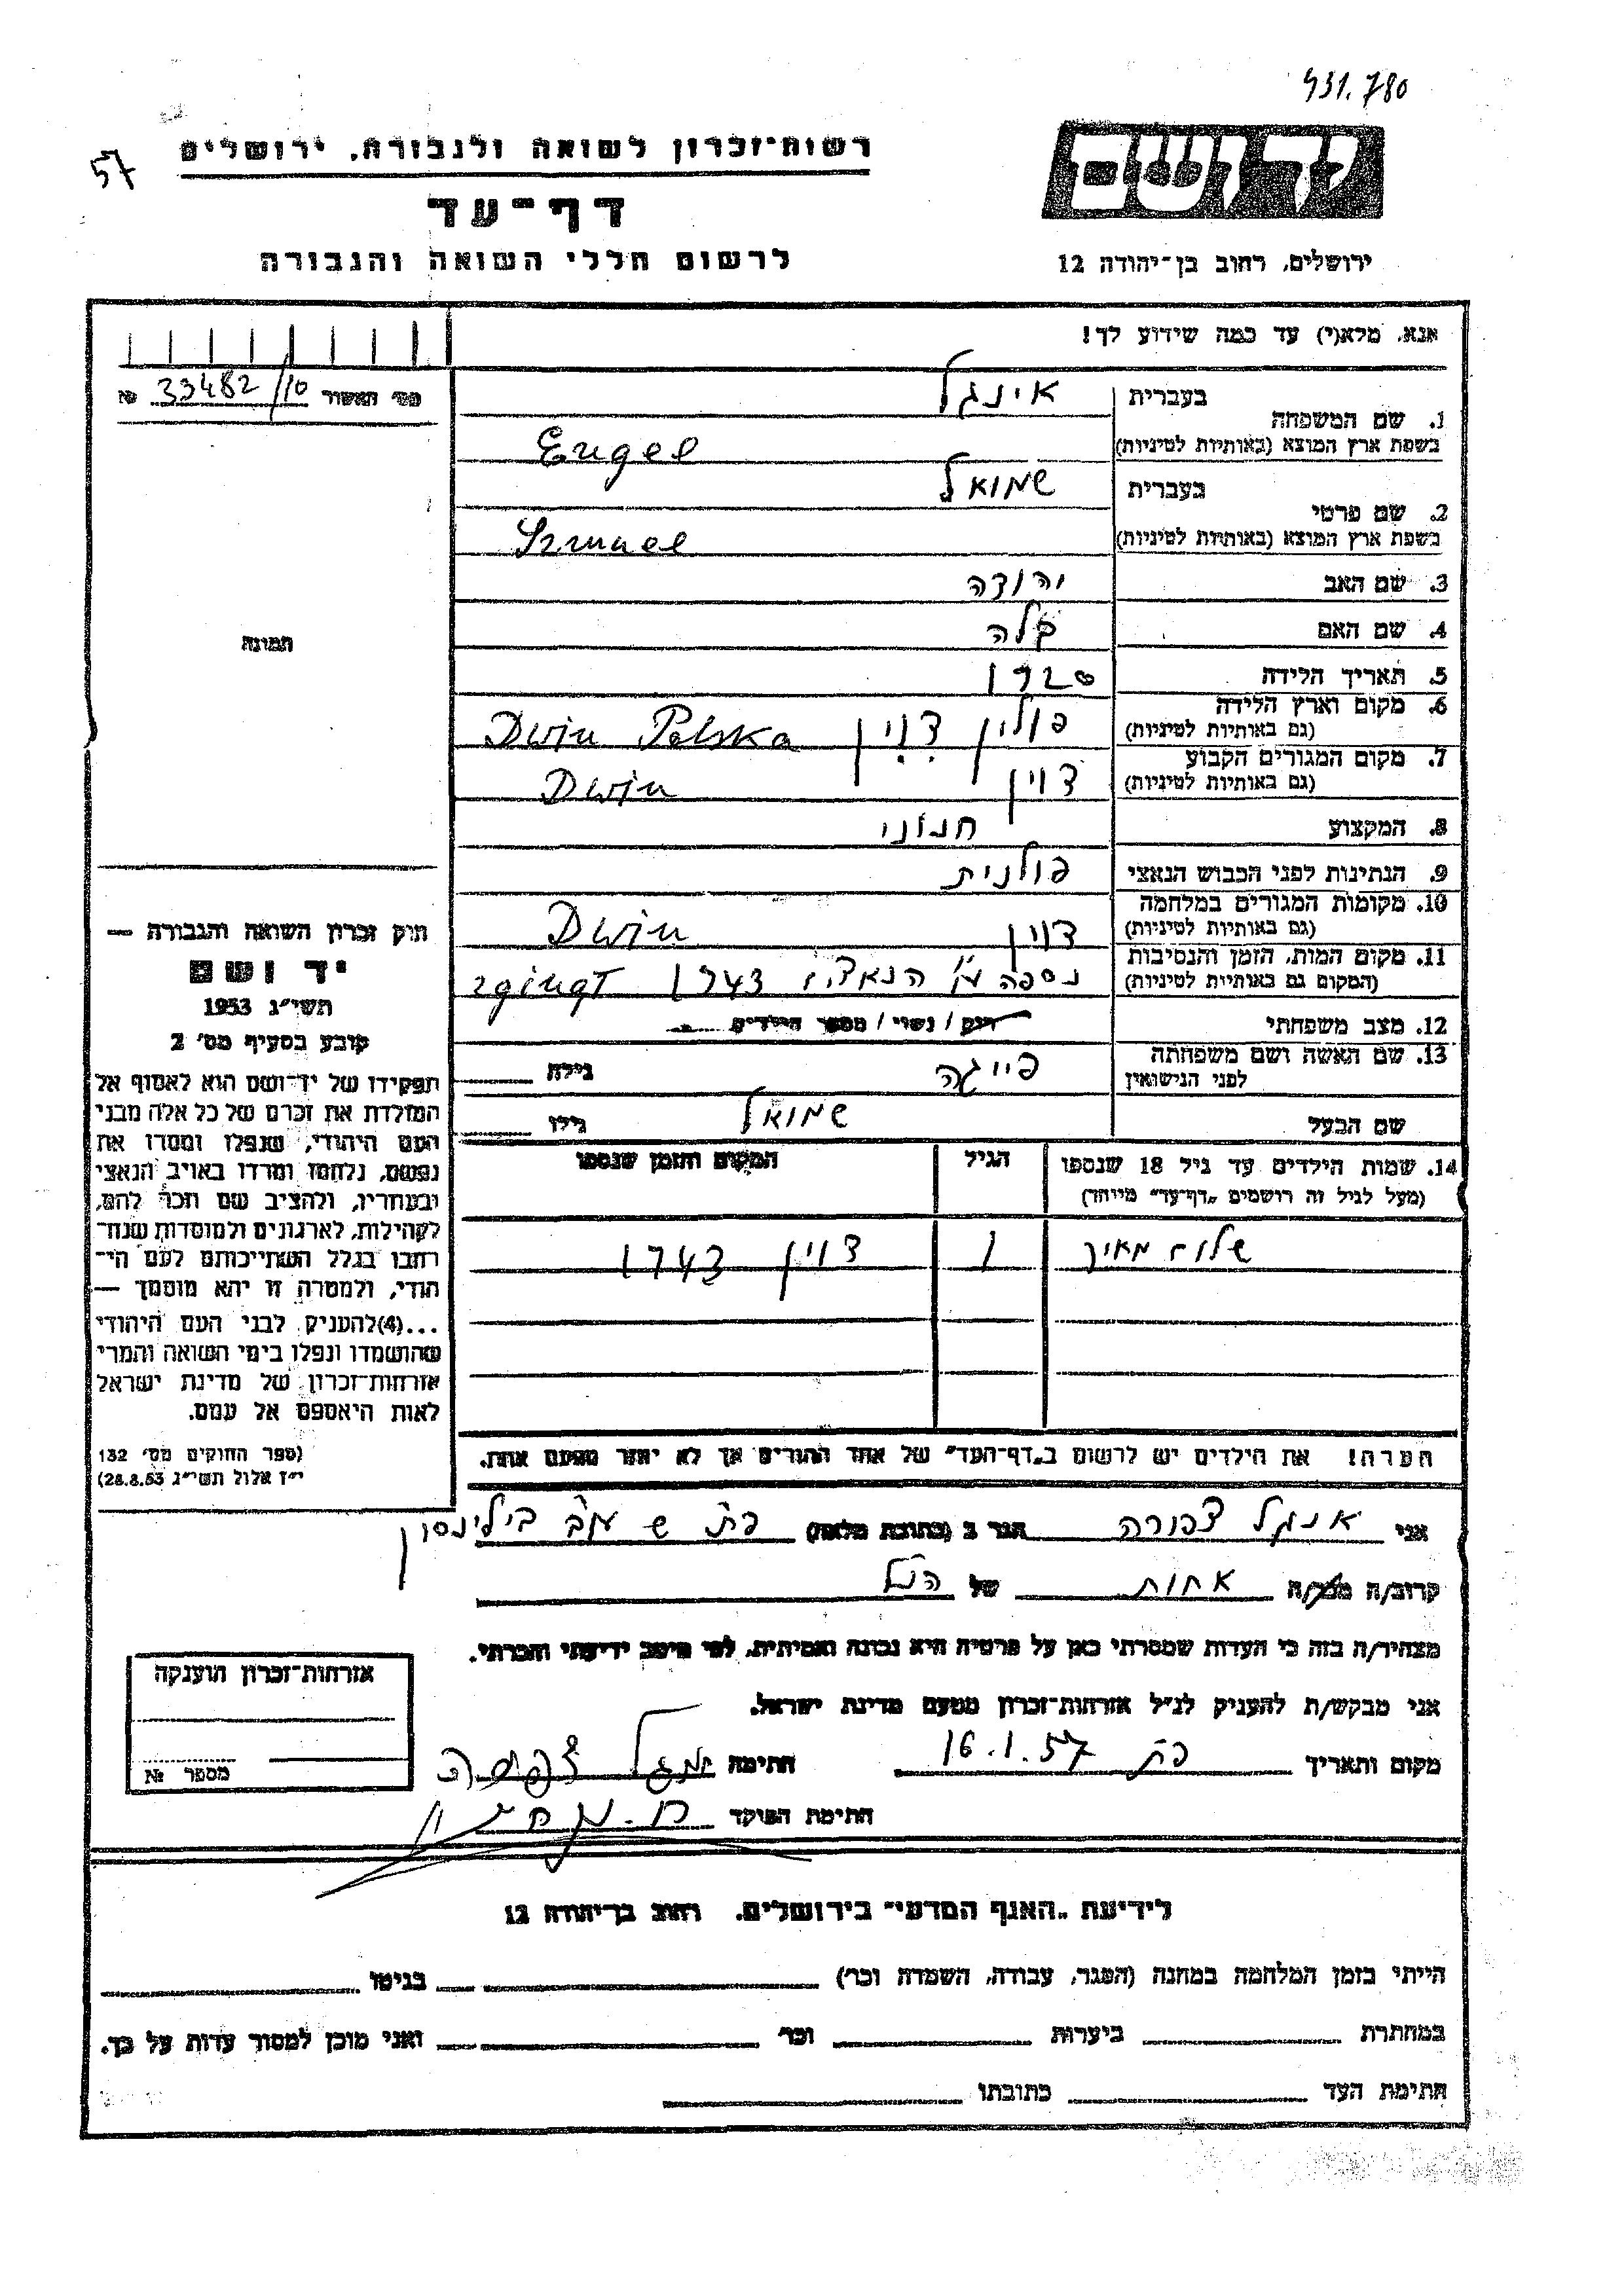 431.780
57
רשות־זכרון לשואה ולגבורה, ירושלים
יד ושם
דף־עד
לרשום חללי השואה והגבורה
ירושלים, רחוב בן־יהודה 12
אנא, מלא(י) עד כמה שידוע לך!
מס׳ האשור № 33482/10
1. שם המשפחה
בעברית אינגל
בשפת ארץ המוצא (באותיות לטיניות) Engel
2. שם פרטי
בעברית שמואל
בשפת ארץ המוצא (באותיות לטיניות) Szmuel
3. שם האב יהודה
4. שם האם
תמונה
5. תאריך הלידה 1920
6. מקום וארץ הלידה
(גם באותיות לטיניות) פולין דוין Dwin Polska
7. מקום המגורים הקבוע
(גם באותיות לטיניות) דוין Dwin
8. המקצוע חנוני
9. הנתינות לפני הכבוש הנאצי פולנית
10. מקומות המגורים במלחמה
(גם באותיות לטיניות) דוין Dwin
11. מקום המות, הזמן והנסיבות
(המקום גם באותיות לטיניות) נספה ע״י הנאצים 1943
12. מצב משפחתי רווק / נשוי / מספר הילדים
13. שם האשה ושם משפחתה
לפני הנישואין פייגה גילה
שם הבעל שמואל גילו
14. שמות הילדים עד גיל 18 שנספו
(מעל לגיל זה רושמים „דף־עד״ מיוחד)
הגיל
המקום והזמן שנספו
מאיר 1 דוין 1943
הערה! את הילדים יש לרשום ב„דף־העד״ של אחד ההורים אך לא יותר מפעם אחת.
חוק זכרון השואה והגבורה —
יד ושם
תשי״ג 1953
קובע בסעיף מס׳ 2
תפקידו של יד־ושם הוא לאסוף אל
המולדת את זכרם של כל אלה מבני
העם היהודי, שנפלו ומסרו את
נפשם, נלחמו ומרדו באויב הנאצי
ובעוזריו, ולהציב שם וזכר להם,
לקהילות, לארגונים ולמוסדות שנח־
רבו בגלל השתייכותם לעם הי־
הודי, ולמטרה זו יהא מוסמך —
...(4)להעניק לבני העם היהודי
שהושמדו ונפלו בימי השואה והמרי
אזרחות־זכרון של מדינת ישראל
לאות היאספם אל עמם.
(ספר החוקים מס׳ 132
י״ז אלול תשי״ג 28.8.53)
אני אנגל צפורה הגר ב (כתובת מלאה) פ״ת ש עוב בילינסון
קרוב/ה מכר/ה אחות של הנ״ל
מצהיר/ה בזה כי העדות שמסרתי כאן על פרטיה היא נכונה ואמיתית, לפי מיטב ידיעתי והכרתי.
אני מבקש/ת להעניק לנ״ל אזרחות־זכרון מטעם מדינת ישראל.
מקום ותאריך פ״ת 16.1.57 חתימה אנגל צפורה
חתימת הפוקד
אזרחות־זכרון הוענקה
מספר №
לידיעת „האגף המדעי״ בירושלים, רחוב בן־יהודה 12
הייתי בזמן המלחמה במחנה (הסגר, עבודה, השמדה וכו׳) בגיטו
במחתרת ביערות וכו׳ ואני מוכן למסור עדות על כך.
חתימת העד כתובתו